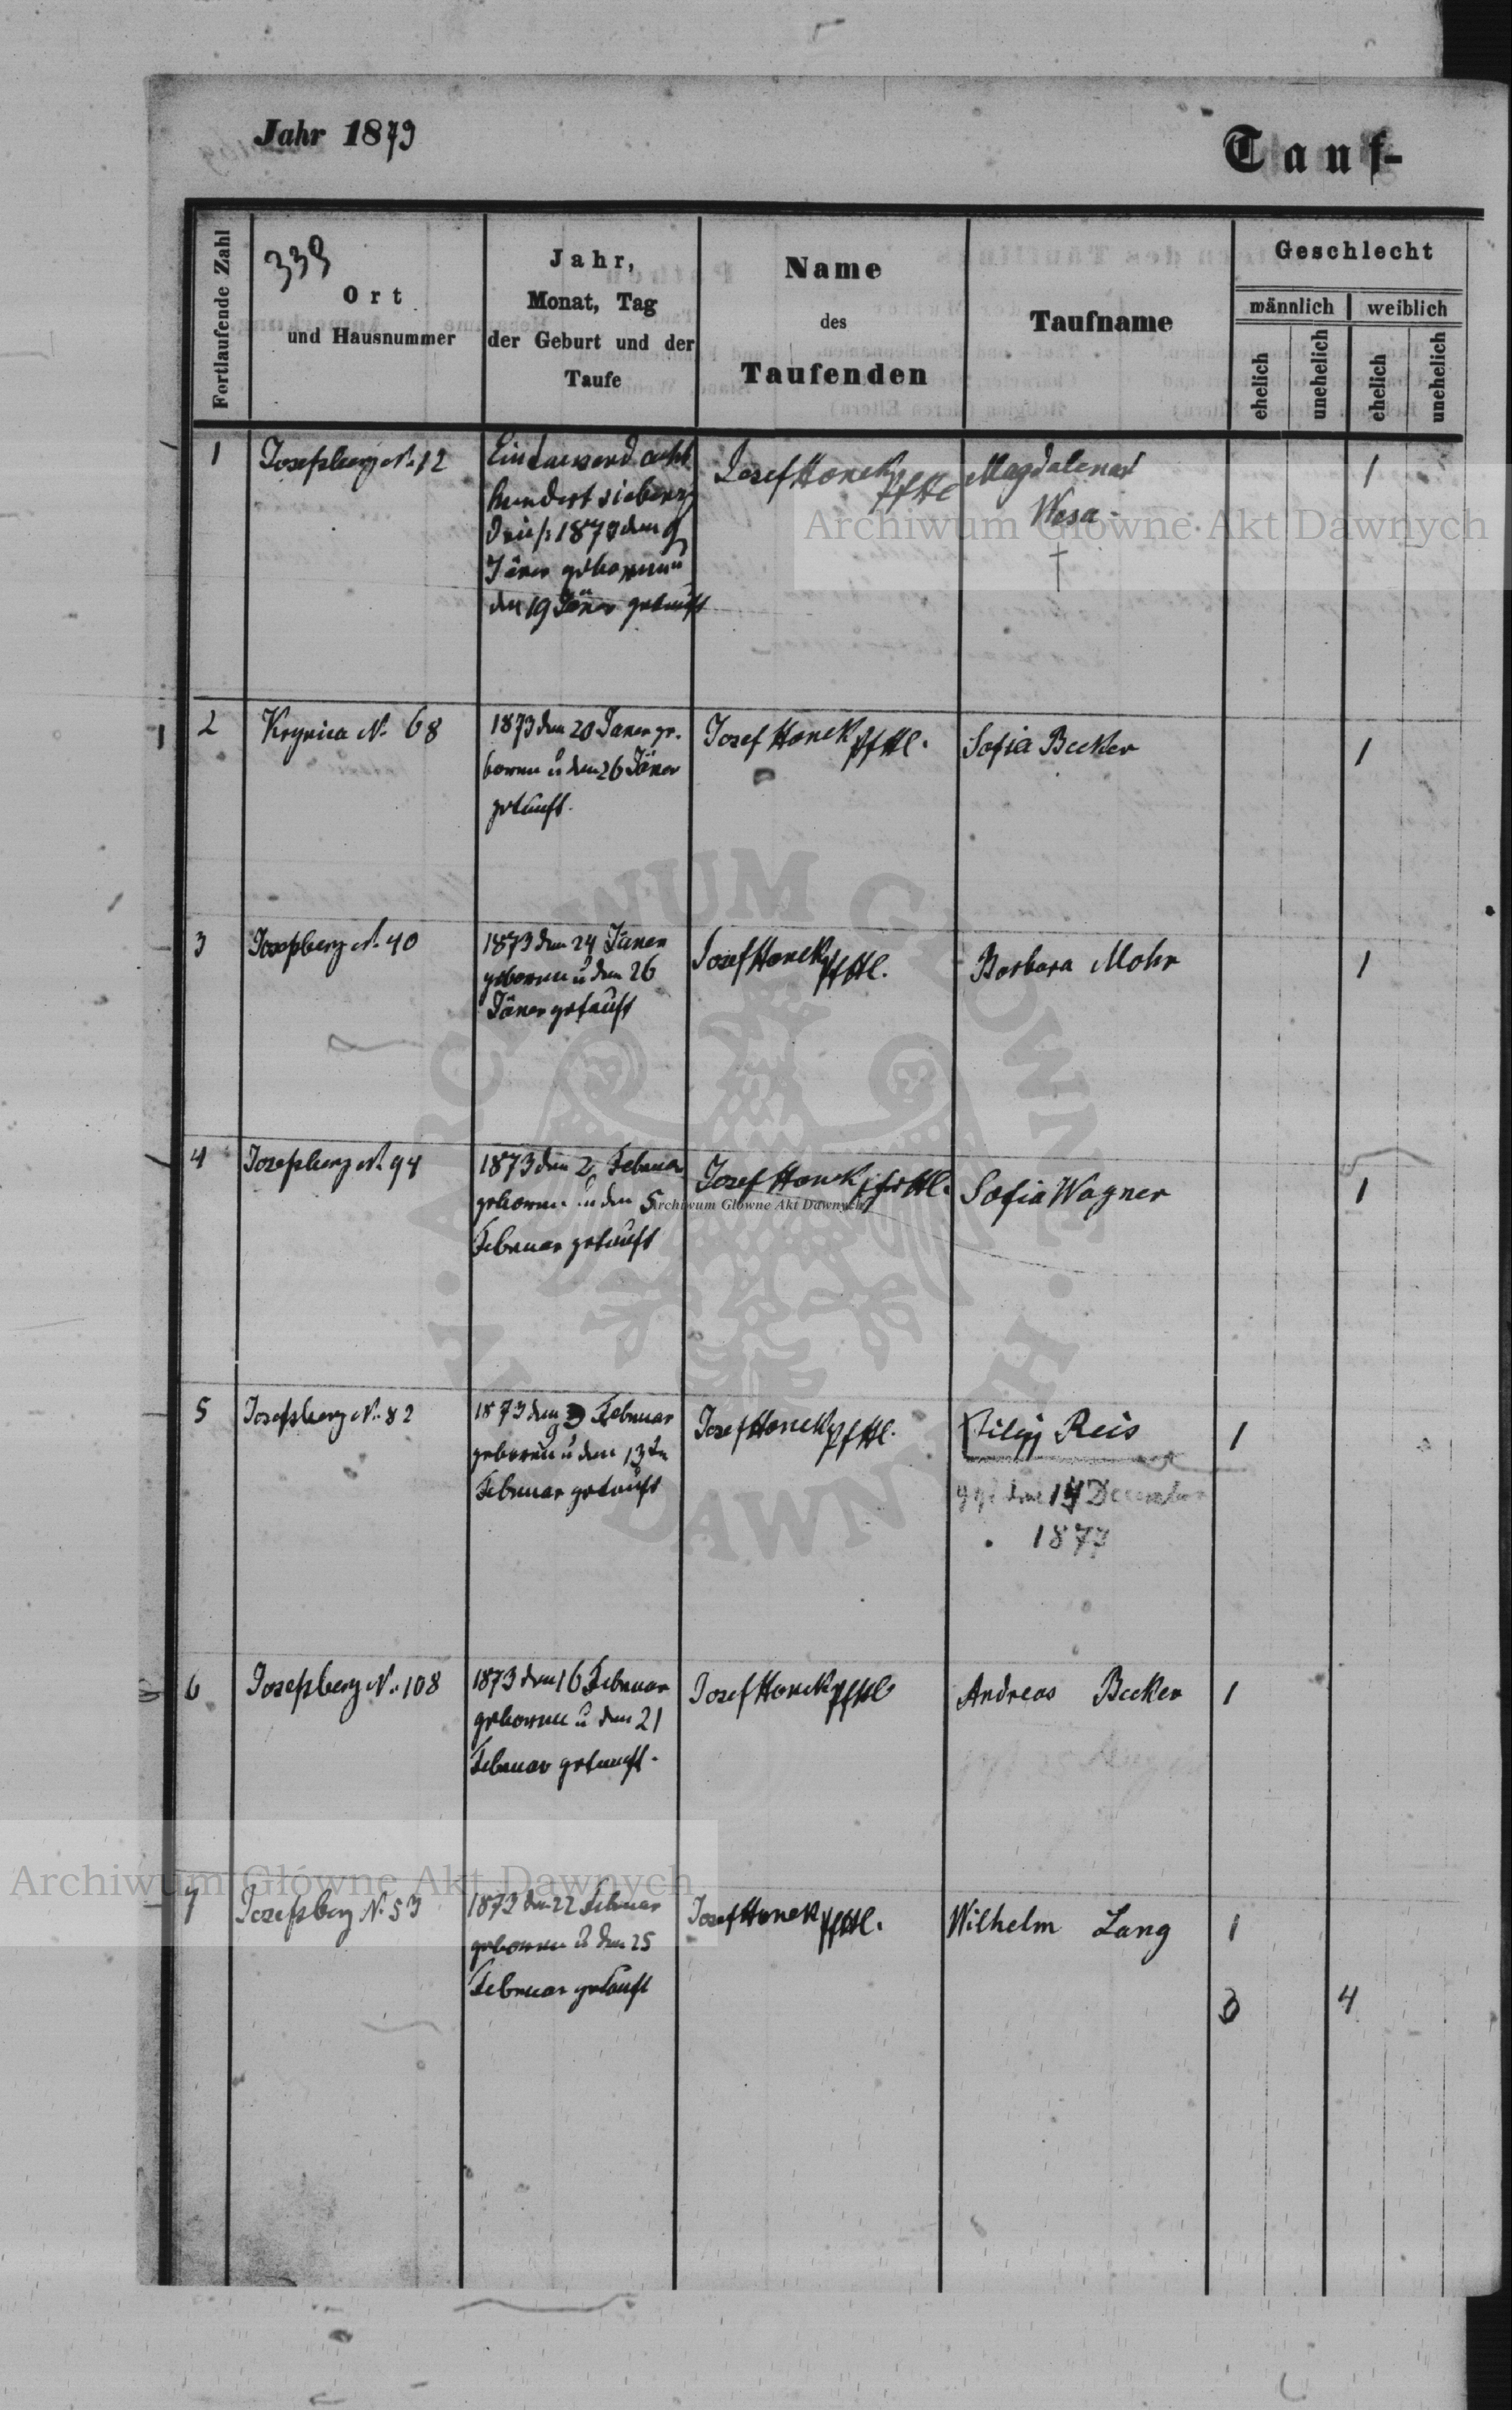 Jahr 1873
Tauf-
Fortlaufende Zahl
339
Ort
und Hausnummer
Jahr,
Monat, Tag
der Geburt und der
Taufe
Name
des
Taufenden
Taufname
Geschlecht
männlich
weiblich
ehelich
unehelich
ehelich
unehelich
1 Josefsberg N. 12
Eintausend acht
hundert siebenz
Drei 1873 den 9
Jäner geboren u
den 19 Jäner getauft
Josef Honek
Magdalena
Wesa
†
1
2 Krynica N. 68
1873 den 20 Janer ge-
boren u den 26 Jäner
getauft.
Josef Honek
Sofia Becker
1
3 Josefsberg N. 40
1873 den 24 Jäner
geboren u den 26
Jäner getauft
Josef Honek
Barbara Mohr
1
4 Josefsberg N. 94
1873 den 2 Februar
geboren u den 5
Februar getauft
Josef Honek
Sofia Wagner
1
5 Josefsberg N. 82
1873 den 9 Februar
geboren u den 13
Februar getauft
Josef Honek
Filip Reis
den 14 December
1877
1
6 Josefsberg N. 108
1873 den 16 Februar
geboren u den 21
Februar getauft.
Josef Honek
Andreas Becker
1
7 Josefsberg N. 53
1873 den 22 Februar
geboren u den 25
Februar getauft
Josef Honek
Wilhelm Lang
1
3 4
Archiwum Główne Akt Dawnych
Archiwum Główne Akt Dawnych
Archiwum Główne Akt Dawnych
ARCHIWUM GŁÓWNE AKT DAWNYCH